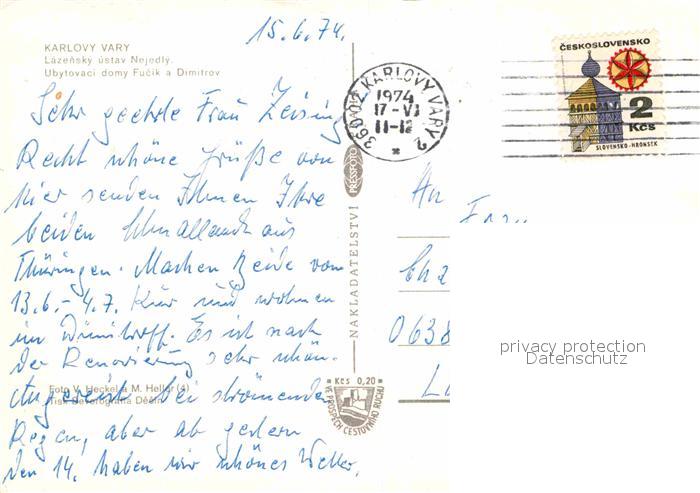 15.6.74.
KARLOVY VARY
Lázeňský ústav Nejedlý.
Ubytovací domy Fučík a Dimitrov
Sehr geehrte Frau Zeising
Recht schöne Grüße von
hier senden Ihnen Ihre
beiden aus
Thüringen. Machen beide vom
13.6.-4.7. Kur und wohnen
im Dimitroff. Es ist nach
der Renovierung sehr schön.
Angereist bei strömenden
Regen, aber ab gestern
den 14. haben wir schönes Wetter.
Foto V. Heckel a M. Heller (4)
Tisk Severografia Děčín
NAKLADATELSTVÍ
PRESSFOTO
360 01 KARLOVY VARY 2
1974
17-VI
11-12
ČESKOSLOVENSKO
2
Kčs
SLOVENSKO-HRONSEK
An
Frn..
0638
privacy protection
Datenschutz
Kčs 0,20
VE PROSPĚCH CESTOVNÍHO RUCHU